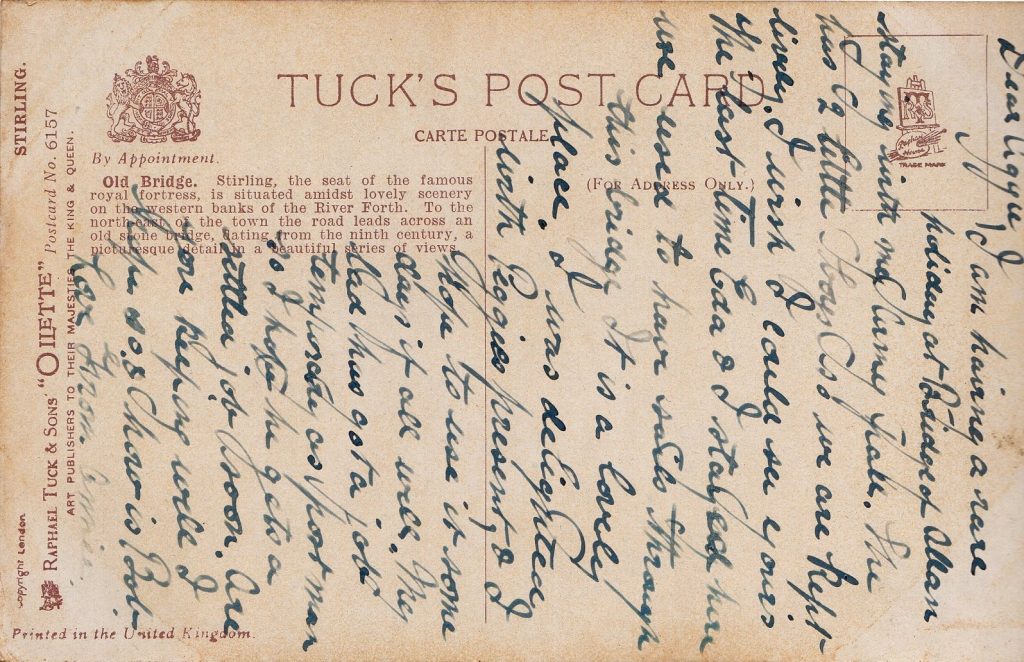 TUCK'S POST CARD
CARTE POSTALE
By Appointment.
(FOR ADDRESS ONLY.)
TRADE MARK
Old Bridge. Stirling, the seat of the famous
royal fortress, is situated amidst lovely scenery
on the western banks of the River Forth. To the
north-east of the town the road leads across an
old stone bridge, dating from the ninth century, a
picturesque detail in a beautiful series of views.
STIRLING.
RAPHAEL TUCK & SONS' "OILETTE" Postcard No. 6157
ART PUBLISHERS TO THEIR MAJESTIES THE KING & QUEEN.
Copyright London
Printed in the United Kingdom.
Dear Aggie
I am having a rare
holiday at Bridge of Allan
staying with my She
has 2 little we are kept
lively. I wish I could see yours
The last time & I stayed here
we used to have through
this bridge It is a lovely
place. I was delighted
with Peggies present & I
Hope to use it some
day if all well. My
dad has got a job
temporary as poor man
so I hope he gets a
job soon. Are
you keeping well I
Hope so & how is Bob
Love from